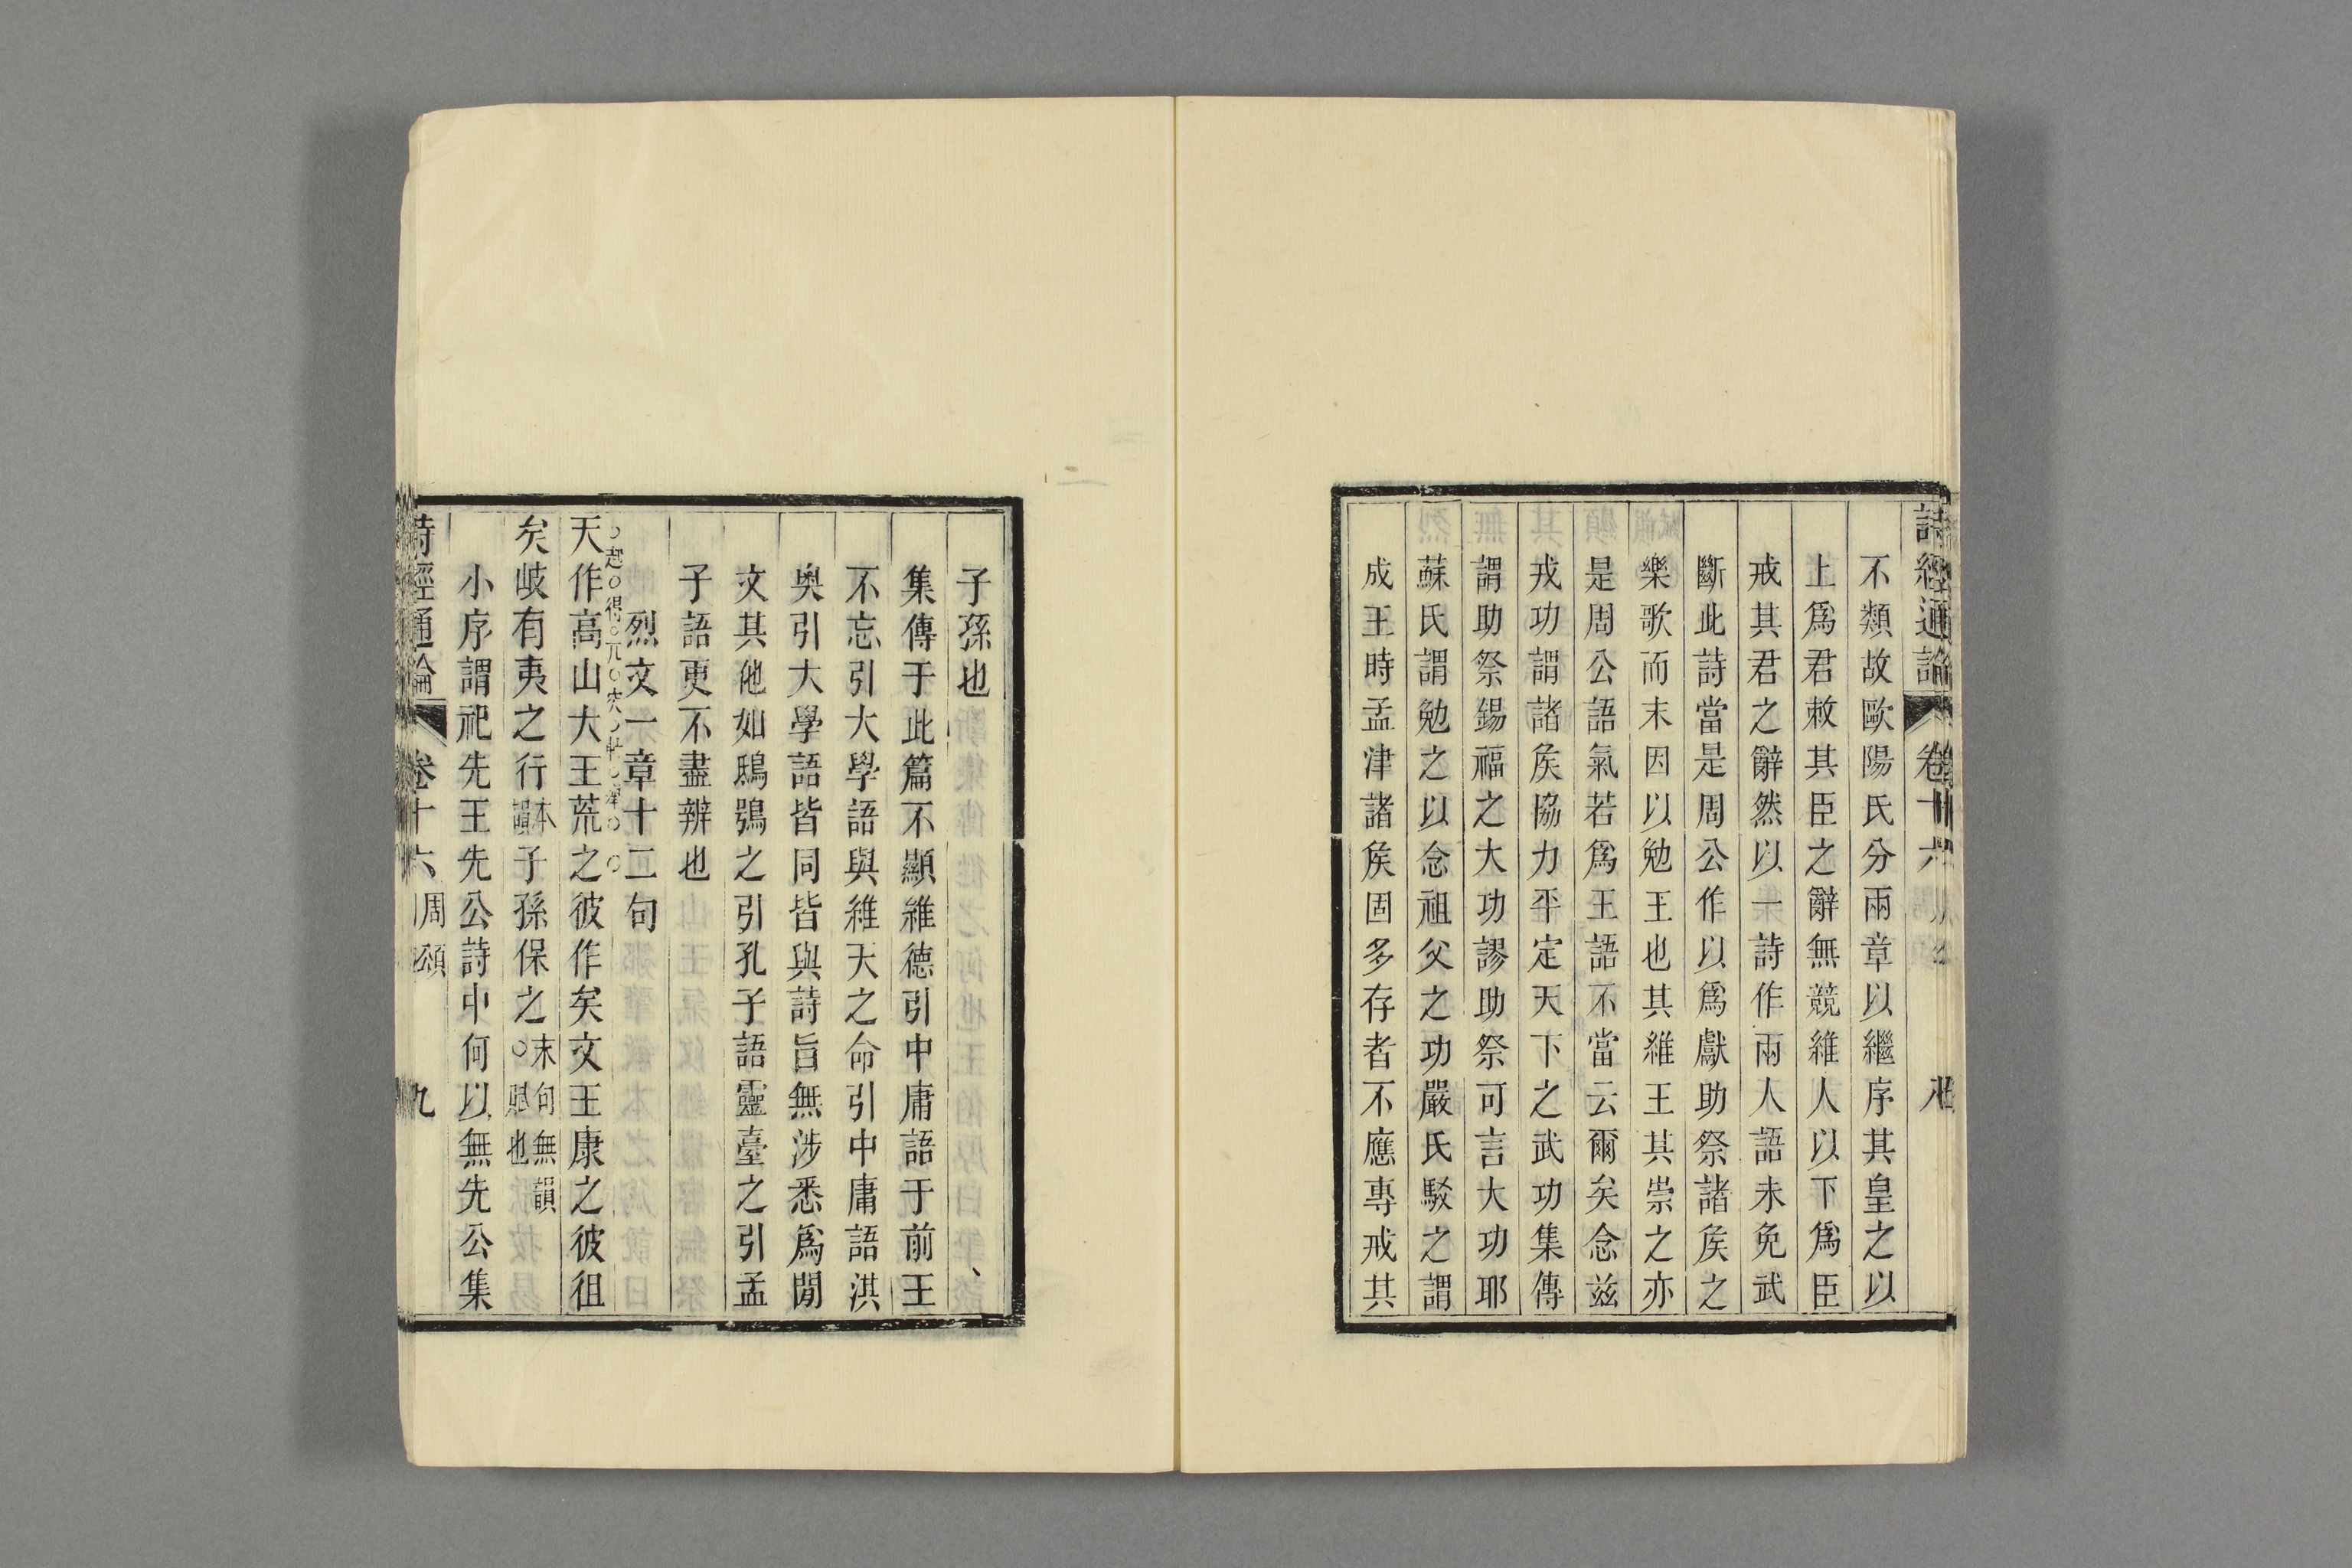 詩經通論 卷十六 八
不類故歐陽氏分兩章以繼序其皇之以
上爲君敕其臣之辭無競維人以下爲臣
戒其君之辭然以一詩作兩人語未免武
斷此詩當是周公作以爲獻助祭諸矦之
樂歌而末因以勉王也其維王其崇之亦
是周公語氣若爲王語不當云爾矣念兹
戎功謂諸矦協力平定天下之武功集傳
謂助祭錫福之大功謬助祭可言大功耶
蘇氏謂勉之以念祖父之功嚴氏駁之謂
成王時孟津諸矦固多存者不應專戒其
子孫也
集傳于此篇不顯維德引中庸語于前王
不忘引大學語與維天之命引中庸語淇
奥引大學語皆同皆與詩旨無涉悉爲閒
文其他如鴟鴞之引孔子語靈臺之引孟
子語更不盡辨也
烈文一章十二句
天作高山大王荒之彼作矣文王康之彼徂
矣岐有夷之行本韻子孫保之末句無韻○賦也
小序謂祀先王先公詩中何以無先公集
詩經通論 卷十六 周頌 九